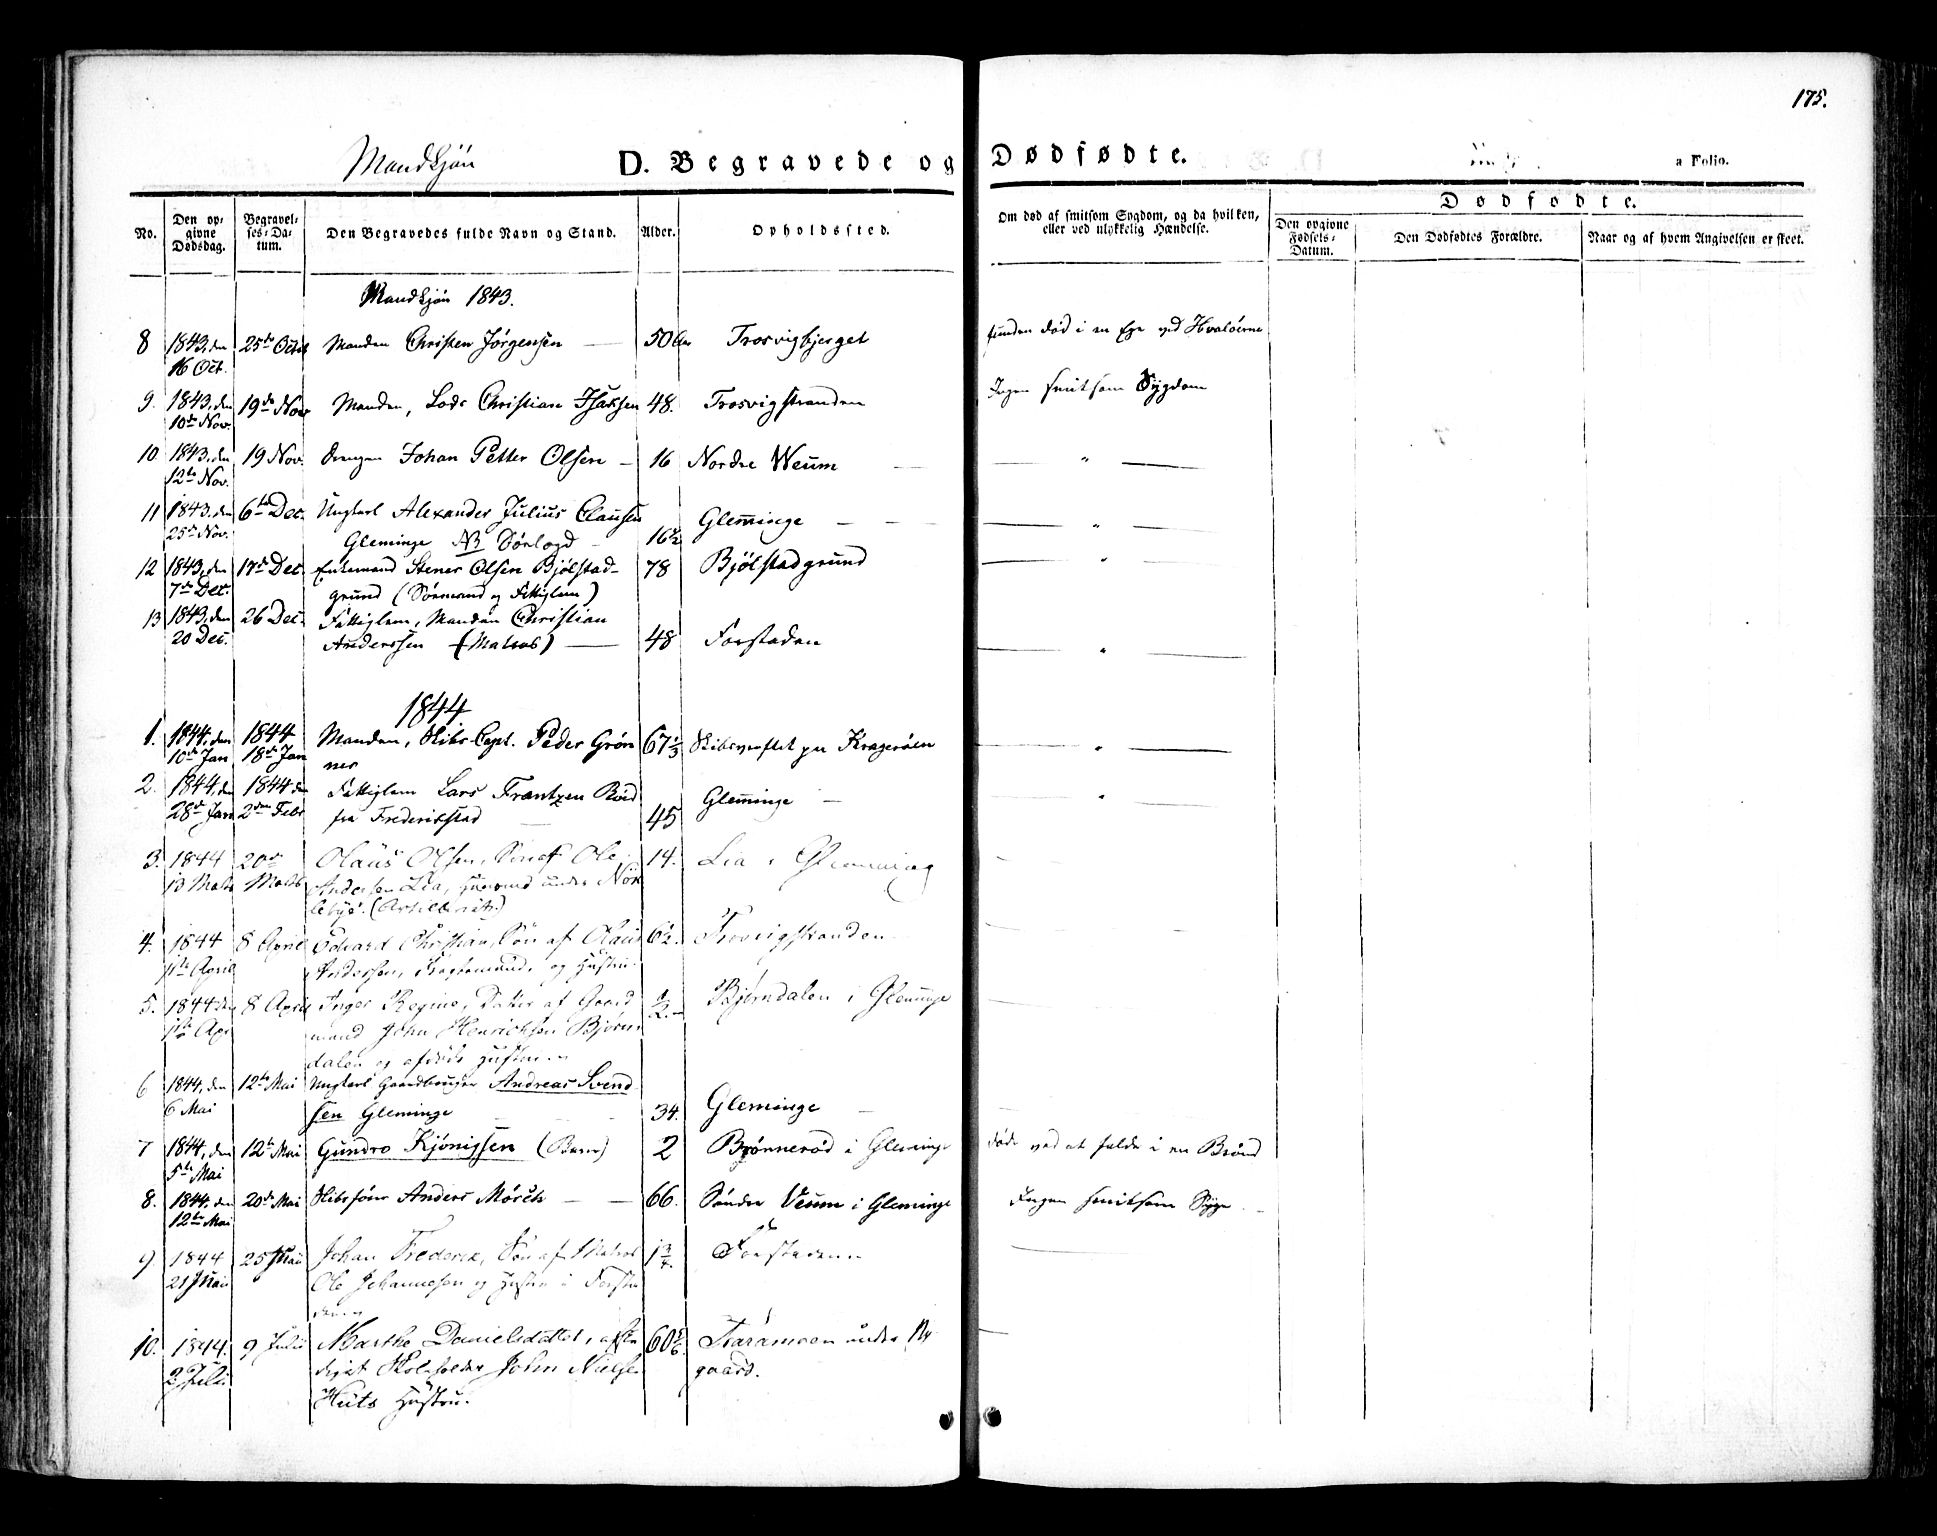 175.
Mandkjøn D. Begravede og Dødfødte. a Folio.
No. Den opgivne Dødsdag. Begravelses-Datum. Den Begravedes fulde Navn og Stand. Alder. Opholdssted. Om død af smitsom Sygdom, og da hvilken, eller ved ulykkelig Hændelse. Dødfødte.
Den opgivne Fødsels-Datum. Den Dødfødtes Forældre. Naar og af hvem Angivelsen er skeet.
Mandkjøn 1843.
8 1843, den 25de Octb Manden Christen Jørgensen — 50 Aar Trosvigbjerget funden død i en Ege ved Hvaløerne
16 Oct.
9. 1843, den 19de Nov Manden, Lods Christian Isaksen 48. Trosvigstranden Ingen smitsom Sygdom
10de Nov.
10 1843, den 19 Nov. Drengen Johan Petter Olsen — 16 Nordre Weum — "
12te Nov.
11 1843, den 6te Dec. Ungkarl Alexander Julius Clausen Glemminge — "
25de Nov. Gleminge NB Sønlogd 16½
12 1843, den 17de Dec. Enkemand Stener Olsen Bjølstad- 78 Bjølstadgrund "
7de Dec. grund (Sørmand og Fattiglem)
13 1843, den 26 Dec. Fattiglem, Manden Christian
20 Dec. Anderssen (Matros) — 48 Forstaden "
1844
1. 1844, den 1844 Manden, Skibs Capt. Peder Grøn 67⅓ Skibsverftet paa Kragerøen "
10de Jan 18de Jan ner
2. 1844, den 1844 den Fattiglem Lars Frantzen Roed Glemminge — "
28de Jan 2den Febr fra Frederikstad 45
3. 1844 20de Olaus Olsen, Søn af Ole 14. Lia i Glemming
13 Marts Marts Andersen Lia, Huusmand under Nør
lebye.
4. 1844 8 April Edvard Christian, Søn af Olaus 6½. Trosvigstranden
1te April Andersen, Fragtemand, og Hustru
5. 1844 den 8 April Inger Regine, Datter af Gaard ½ Bjørndalen i Glemminge
1te Apr mand John Henrichsen Bjørn
dalen og afdøde Hustru
6 1844, den 12te Mai Ungkarl Gaardbruger Andreas Svend
6 Mai sen Gleminge 34. Gleminge —
7 1844, den 12te Mai Gundro Kjønigsen (Barn) 2 Bjønnerød i Gleminge Døde ved at falde i en Brønd
5te Mai
8. 1844, den 20de Mai Skibsfører Anders Mørch — 66. Søndre Veum i Gleminge Ingen smitsom Syge
12te Mai
9. 1844 25 Mai Johan Frederik, Søn af Matros 1¾. Forstaden
21 Mai Ole Johannesen og Hustru i Forsta
den
10. 1844. 9 Julii Marthe Danielsdatter, 60 Taramoen under Ny
2 Juli John Nielsen gaard.
Hüts Hustru.